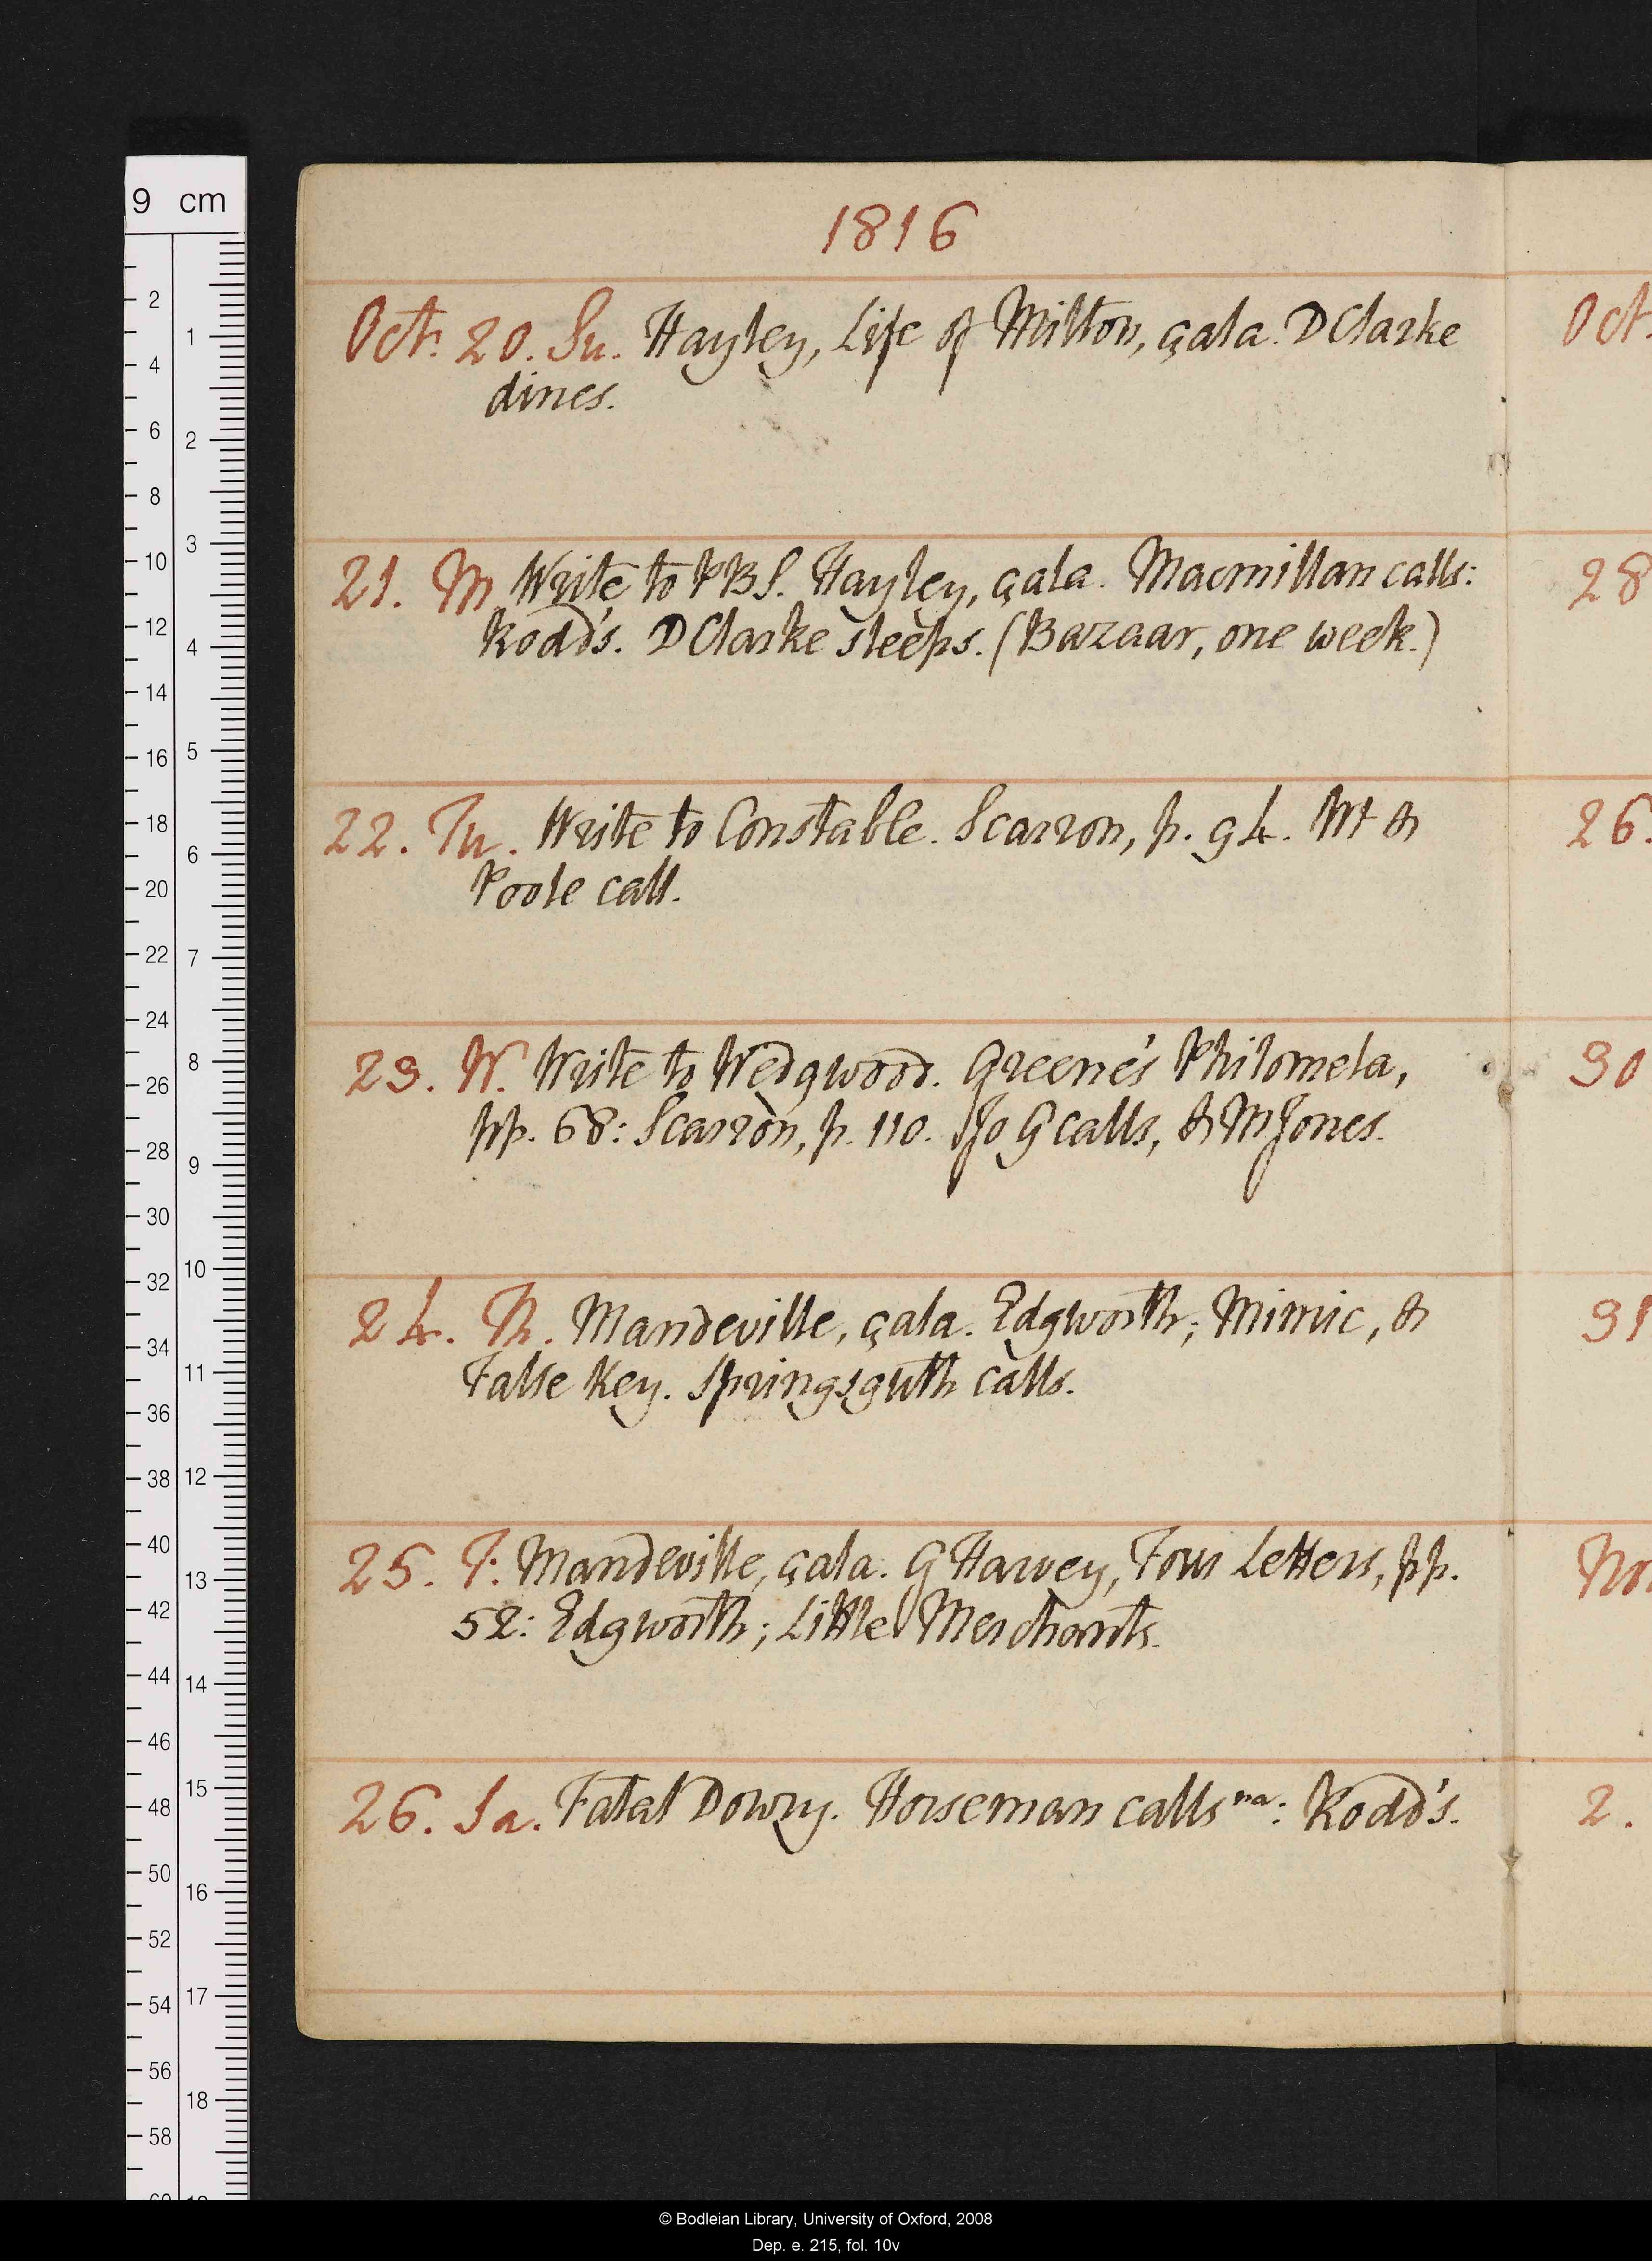 1816
Oct. 20. Su. Hayley, Life of Milton, çala. D Clarke
dines.
21. M. Write to PBS. Hayley, çala. Macmillan calls:
Rodd's. D Clarke sleeps. (Bazaar, one week.)
22. Tu. Write to Constable. Scarron, p. 94. M &
Poole call.
23. W. Write to Wedgwood. Greene's Philomela,
pp. 68: Scarron, p. 110. Jo G calls, & M Jones.
24. Th. Mandeville, çala. Edgworth; Mimic, &
False Key. Springsguth calls.
25. F. Mandeville, çala. G Harvey, Four Letters, pp.
52: Edgworth; Little Merchants.
26. Sa. Fatal Dowry. Horseman calls na: Rodd's.
Oct.
28
26.
30
31
No
2.
9 cm
2
4
6
8
10
12
14
16
18
20
22
24
26
28
30
32
34
36
38
40
42
44
46
48
50
52
54
56
58
1
2
3
4
5
6
7
8
9
10
11
12
13
14
15
16
17
18
© Bodleian Library, University of Oxford, 2008
Dep. e. 215, fol. 10v